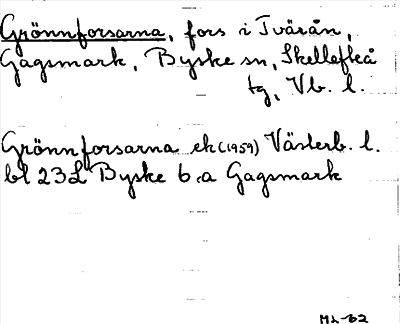 Grönnforsarna, fors i Tvärån,
Gagsmark, Byske sn, Skellefteå
tg, Vb. l.
Grönnforsarna ek (1959) Västerb. l.
bl 23L Byske 6 a Gagsmark